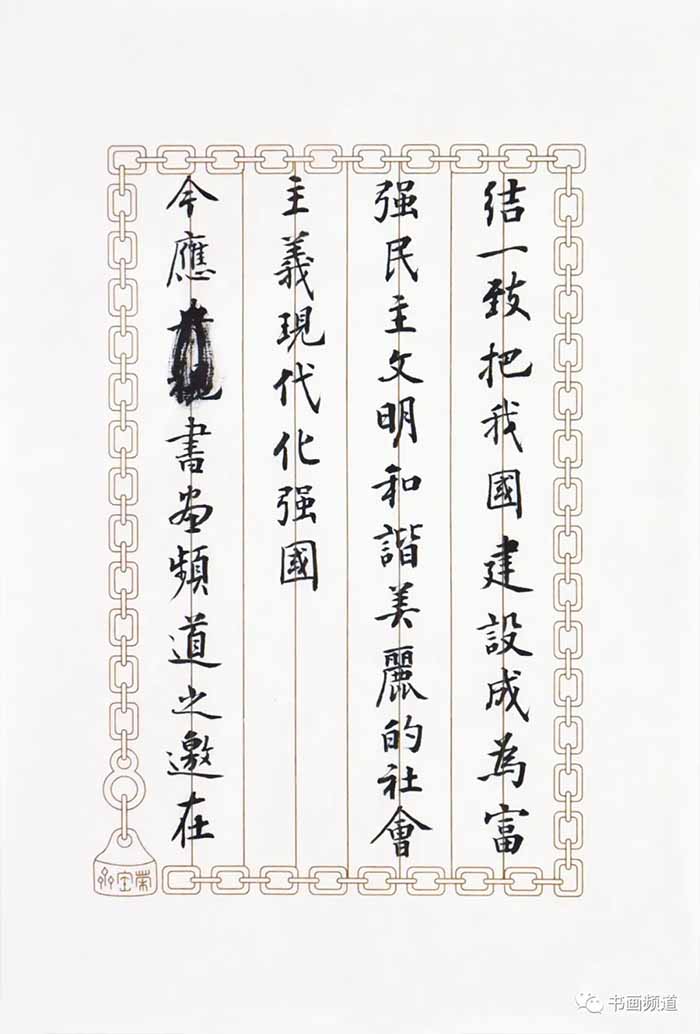 结一致把我國建設成為富
强民主文明和諧美麗的社會
主義現代化强國
今應書畫頻道之邀在
榮宝斋
书画频道